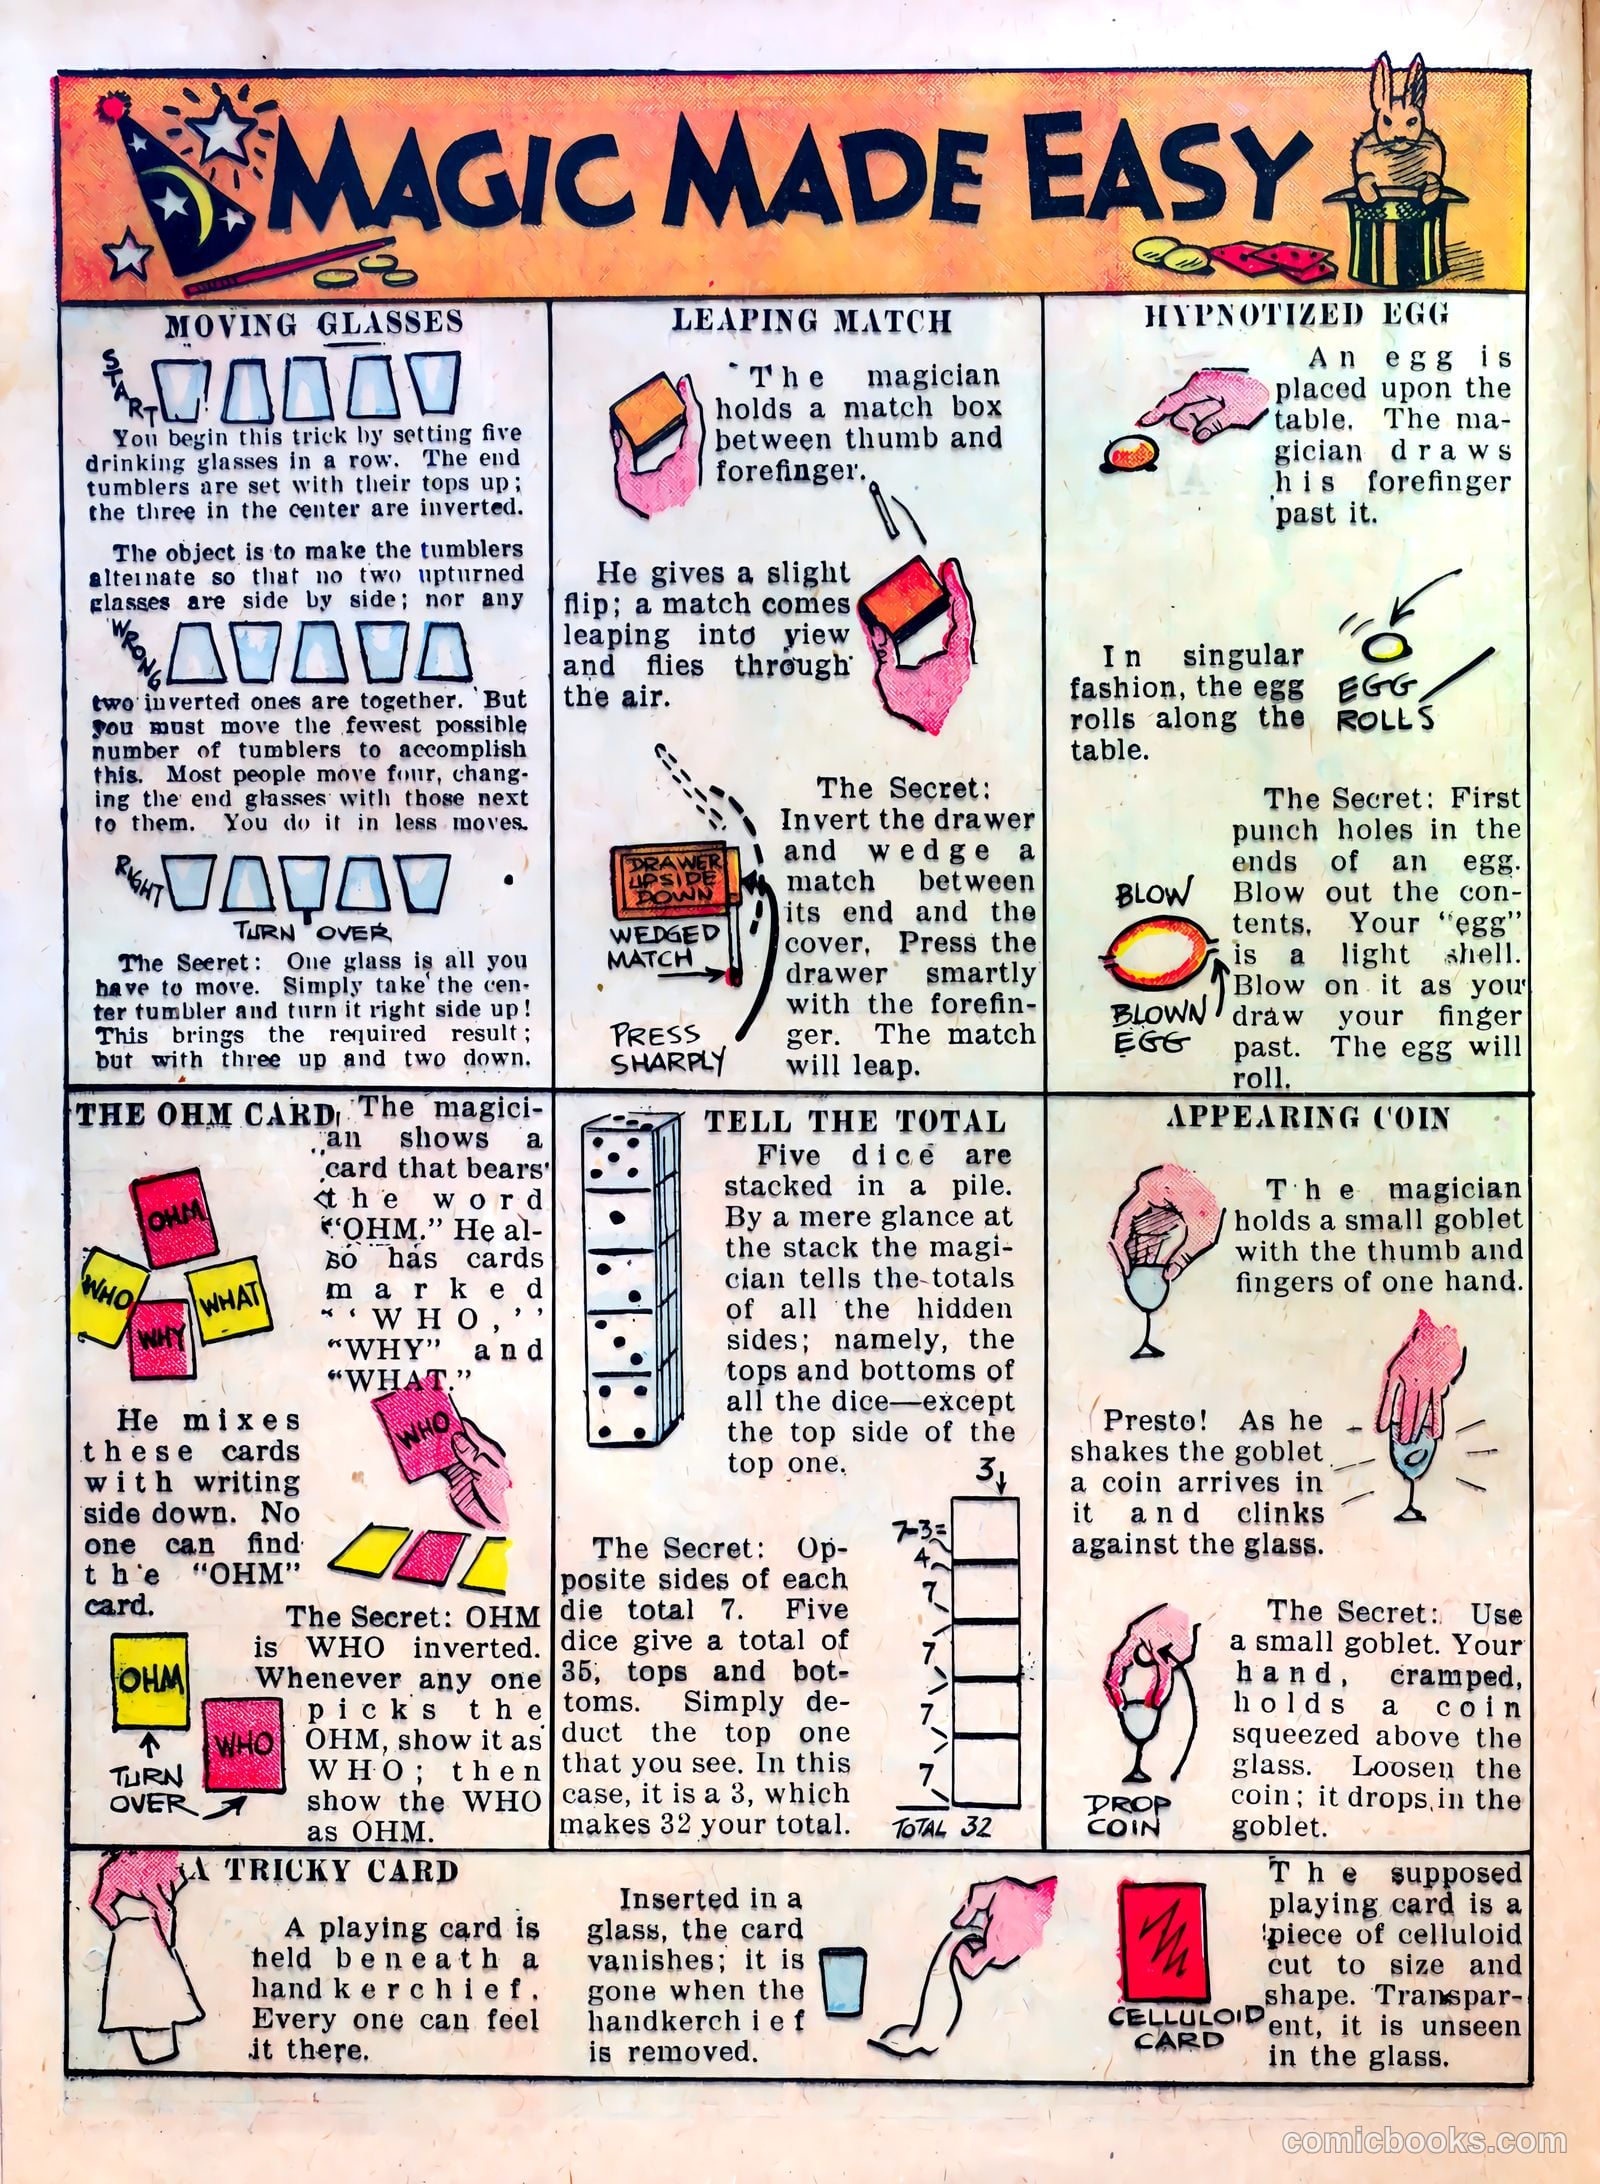 MAGIC MADE EASY
MOVING GLASSES
START
You begin this trick by setting five
drinking glasses in a row. The end
tumblers are set with their tops up;
the three in the center are inverted.
The object is to make the tumblers
alternate so that no two upturned
glasses are side by side; nor any
WRONG
two inverted ones are together. But
you must move the fewest possible
number of tumblers to accomplish
this. Most people move four, chang-
ing the end glasses with those next
to them. You do it in less moves.
RIGHT
TURN OVER
The Secret: One glass is all you
have to move. Simply take the cen-
ter tumbler and turn it right side up!
This brings the required result;
but with three up and two down.
LEAPING MATCH
The magician
holds a match box
between thumb and
forefinger.
He gives a slight
flip; a match comes
leaping into view
and flies through
the air.
The Secret:
Invert the drawer
and wedge a
match between
its end and the
cover. Press the
drawer smartly
with the forefin-
ger. The match
will leap.
DRAWER
UPSIDE
DOWN
WEDGED
MATCH
PRESS
SHARPLY
HYPNOTIZED EGG
An egg is
placed upon the
table. The ma-
gician draws
his forefinger
past it.
In singular
fashion, the egg
rolls along the
table.
EGG
ROLLS
The Secret: First
punch holes in the
ends of an egg.
Blow out the con-
tents. Your "egg"
is a light shell.
Blow on it as you
draw your finger
past. The egg will
roll.
BLOW
BLOWN
EGG
THE OHM CARD
The magici-
an shows a
card that bears
the word
"OHM." He al-
so has cards
marked
"WHO,"
"WHY" and
"WHAT."
OHM
WHO
WHAT
WHY
He mixes
these cards
with writing
side down. No
one can find
the "OHM"
card.
WHO
The Secret: OHM
is WHO inverted.
Whenever any one
picks the
OHM, show it as
WHO; then
show the WHO
as OHM.
OHM
WHO
TURN
OVER
TELL THE TOTAL
Five dice are
stacked in a pile.
By a mere glance at
the stack the magi-
cian tells the totals
of all the hidden
sides; namely, the
tops and bottoms of
all the dice—except
the top side of the
top one.
The Secret: Op-
posite sides of each
die total 7. Five
dice give a total of
35, tops and bot-
toms. Simply de-
duct the top one
that you see. In this
case, it is a 3, which
makes 32 your total.
3
7-3=
4
7
7
7
7
TOTAL 32
APPEARING COIN
The magician
holds a small goblet
with the thumb and
fingers of one hand.
Presto! As he
shakes the goblet
a coin arrives in
it and clinks
against the glass.
The Secret: Use
a small goblet. Your
hand, cramped,
holds a coin
squeezed above the
glass. Loosen the
coin; it drops in the
goblet.
DROP
COIN
A TRICKY CARD
A playing card is
held beneath a
handkerchief.
Every one can feel
it there.
Inserted in a
glass, the card
vanishes; it is
gone when the
handkerchief
is removed.
CELLULOID
CARD
The supposed
playing card is a
piece of celluloid
cut to size and
shape. Transpar-
ent, it is unseen
in the glass.
comicbooks.com